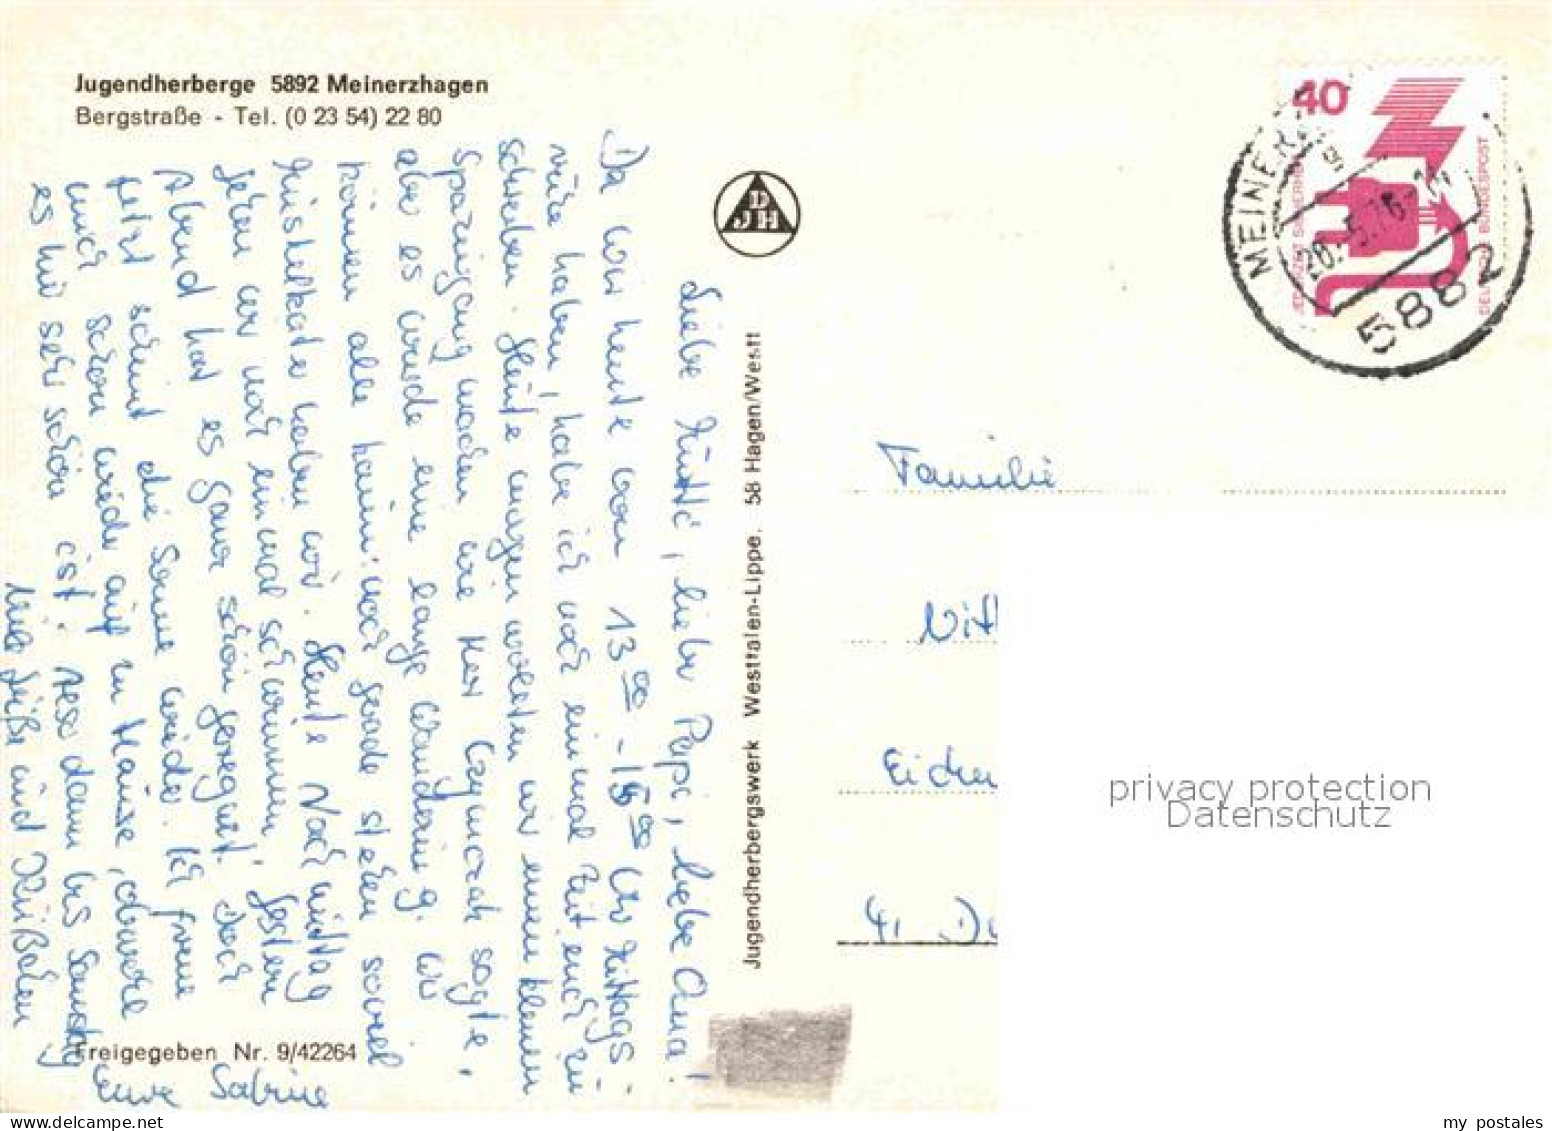 Jugendherberge 5892 Meinerzhagen
Bergstraße - Tel. (0 23 54) 22 80
Liebe Mutti, lieber Papi, liebe Oma!
Da wir heute von 13⁰⁰ - 15⁰⁰ Uhr Mittags-
ruhe haben, habe ich noch einmal Zeit euch zu
schreiben. Heute morgen wollten wir einen kleinen
Spaziergang machen wie Herr sagte,
aber es wurde eine lange Wanderung. Wir
können alle kaum noch gerade stehen soviel
Muskelkater haben wir. Heute Nachmittag
gehen wir noch einmal schwimmen. Gestern
Abend hat es ganz schön geregnet. Doch
jetzt scheint die Sonne wieder. Ich freue
mich schon wieder auf zu Hause, obwohl
es hier sehr schön ist. Also dann bis Samstag
Viele Grüße und Küßchen
eure Sabine
Freigegeben Nr. 9/42264
DJH
Jugendherbergswerk Westfalen-Lippe, 58 Hagen/Westf
40
JEDERZEIT SICHERHEIT
DEUTSCHE BUNDESPOST
MEINERZ
g
20.-5.76-14
5882
Familie
Eichen
privacy protection
Datenschutz
my postales